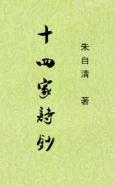 十四家詩鈔
朱自清 著